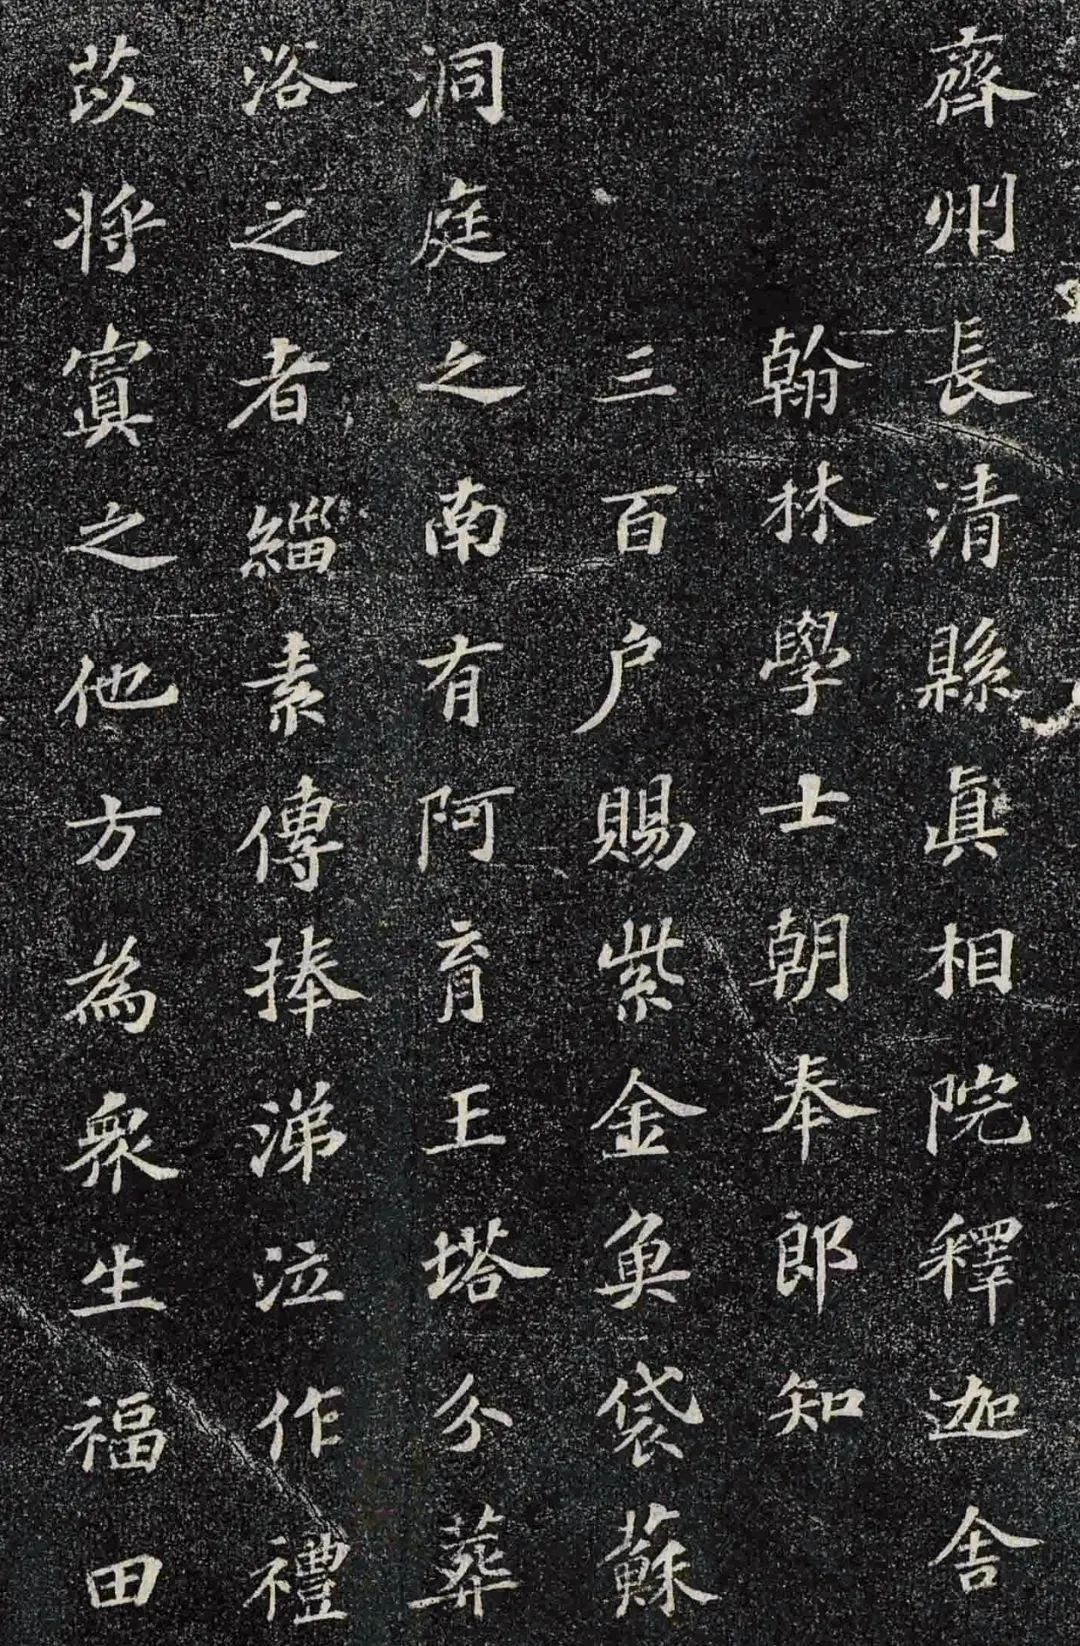 齊州長清縣眞相院釋迦舍
翰林學士朝奉郎知
三百户賜紫金魚袋蘇
洞庭之南有阿育王塔分葬
浴之者緇素傳捧涕泣作禮
苾將寘之他方為衆生福田